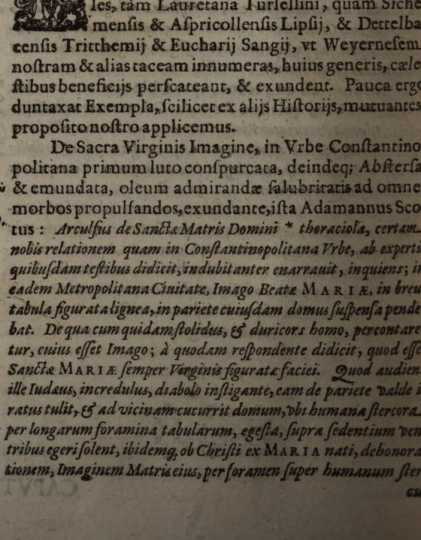 les, tàm Lauretana Turſellini, quàm Siche
menſis & Aſpricollenſis Lipſij, & Dettelba
cenſis Tritthemij & Eucharij Sangij, vt Weyerneſem
noſtram & alias taceam innumeras, huius generis, cæle
ſtibus beneficijs perſcateant, & exundent. Pauca ergo
duntaxat Exempla, ſcilicet ex alijs Hiſtorijs, mutuantes
propoſito noſtro applicemus.
De Sacra Virginis Imagine, in Vrbe Conſtantino
politana primum luto conſpurcata, deindeq; Abſterſa
& emundata, oleum admirandæ ſalubritatis ad omne
morbos propulſandos, exundante, iſta Adamannus Sco
tus: Arculfus de Sanctæ Matris Domini * thoraciola, certam
nobis relationem quam in Conſtantinopolitana Vrbe, ab experti
quibuſdam teſtibus didicit, indubitanter enarrauit, inquiens; in
eadem Metropolitana Ciuitate, Imago Beatæ MARIÆ, in breu
tabula figurata lignea, in pariete cuiuſdam domus ſuſpenſa pende
bat. De qua cum quidam ſtolidus, & duricors homo, percontare
tur, cuius eſſet Imago; à quodam reſpondente didicit, quod eſſe
Sanctæ MARIÆ ſemper Virginis figuratæ faciei. Quod audien
ille Iudæus, incredulus, diabolo inſtigante, eam de pariete valde i
ratus tulit, & ad vicinam cucurrit domum, vbi humana ſtercora
per longarum foramina tabularum, egeſta, ſupra ſedentium ven
tribus egeri ſolent, ibidemq, ob Chriſti ex MARIA nati, dehonora
tionem, Imaginem Matris eius, per foramen ſuper humanum ſter
cu